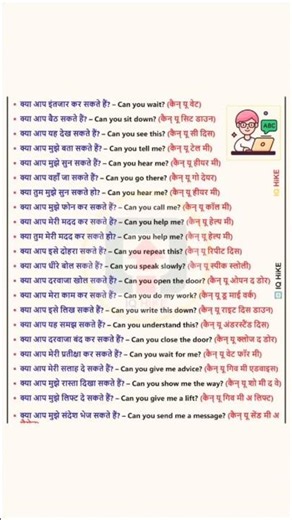 • क्या आप इंतजार कर सकते हैं? – Can you wait? (कैन् यू वेट)
• क्या आप बैठ सकते हैं? – Can you sit down? (कैन् यू सिट डाउन)
• क्या आप यह देख सकते हैं? – Can you see this? (कैन् यू सी दिस)
• क्या आप मुझे बता सकते हैं? – Can you tell me? (कैन् यू टेल मी)
• क्या आप मुझे सुन सकते हैं? – Can you hear me? (कैन् यू हीयर मी)
• क्या आप वहाँ जा सकते हैं? – Can you go there? (कैन् यू गो देयर)
• क्या तुम मुझे सुन सकते हो? – Can you hear me? (कैन् यू हीयर मी)
• क्या आप मुझे फोन कर सकते हैं? – Can you call me? (कैन् यू कॉल मी)
• क्या आप मेरी मदद कर सकते हैं? – Can you help me? (कैन् यू हेल्प मी)
• क्या तुम मेरी मदद कर सकते हो? – Can you help me? (कैन् यू हेल्प मी)
• क्या आप इसे दोहरा सकते हैं? – Can you repeat this? (कैन् यू रिपीट दिस)
• क्या आप धीरे बोल सकते हैं? – Can you speak slowly? (कैन् यू स्पीक स्लोली)
• क्या आप दरवाजा खोल सकते हैं? – Can you open the door? (कैन् यू ओपन द डोर)
• क्या आप मेरा काम कर सकते हैं? – Can you do my work? (कैन् यू डू माई वर्क)
• क्या आप इसे लिख सकते हैं? – Can you write this down? (कैन् यू राइट दिस डाउन)
• क्या आप यह समझ सकते हैं? – Can you understand this? (कैन् यू अंडरस्टैंड दिस)
• क्या आप दरवाजा बंद कर सकते हैं? – Can you close the door? (कैन् यू क्लोज द डोर)
• क्या आप मेरी प्रतीक्षा कर सकते हैं? – Can you wait for me? (कैन् यू वेट फॉर मी)
• क्या आप मेरी सलाह दे सकते हैं? – Can you give me advice? (कैन् यू गिव मी एडवाइस)
• क्या आप मुझे रास्ता दिखा सकते हैं? – Can you show me the way? (कैन् यू शो मी द वे)
• क्या आप मुझे लिफ्ट दे सकते हैं? – Can you give me a lift? (कैन् यू गिव मी अ लिफ्ट)
• क्या आप मुझे संदेश भेज सकते हैं? – Can you send me a message? (कैन् यू सेंड मी अ
ABC
IQ HIKE
IQ HIKE